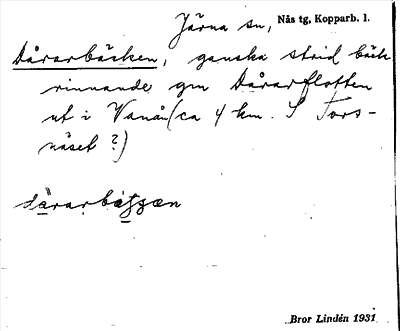 Järna sn, Nås tg, Kopparb. l.
Dårarbäcken, ganska strid bäck
rinnande gm Dårarflotten
ut i Vanån (ca 4 km. S Fors-
näset?)
Bror Lindén 1931